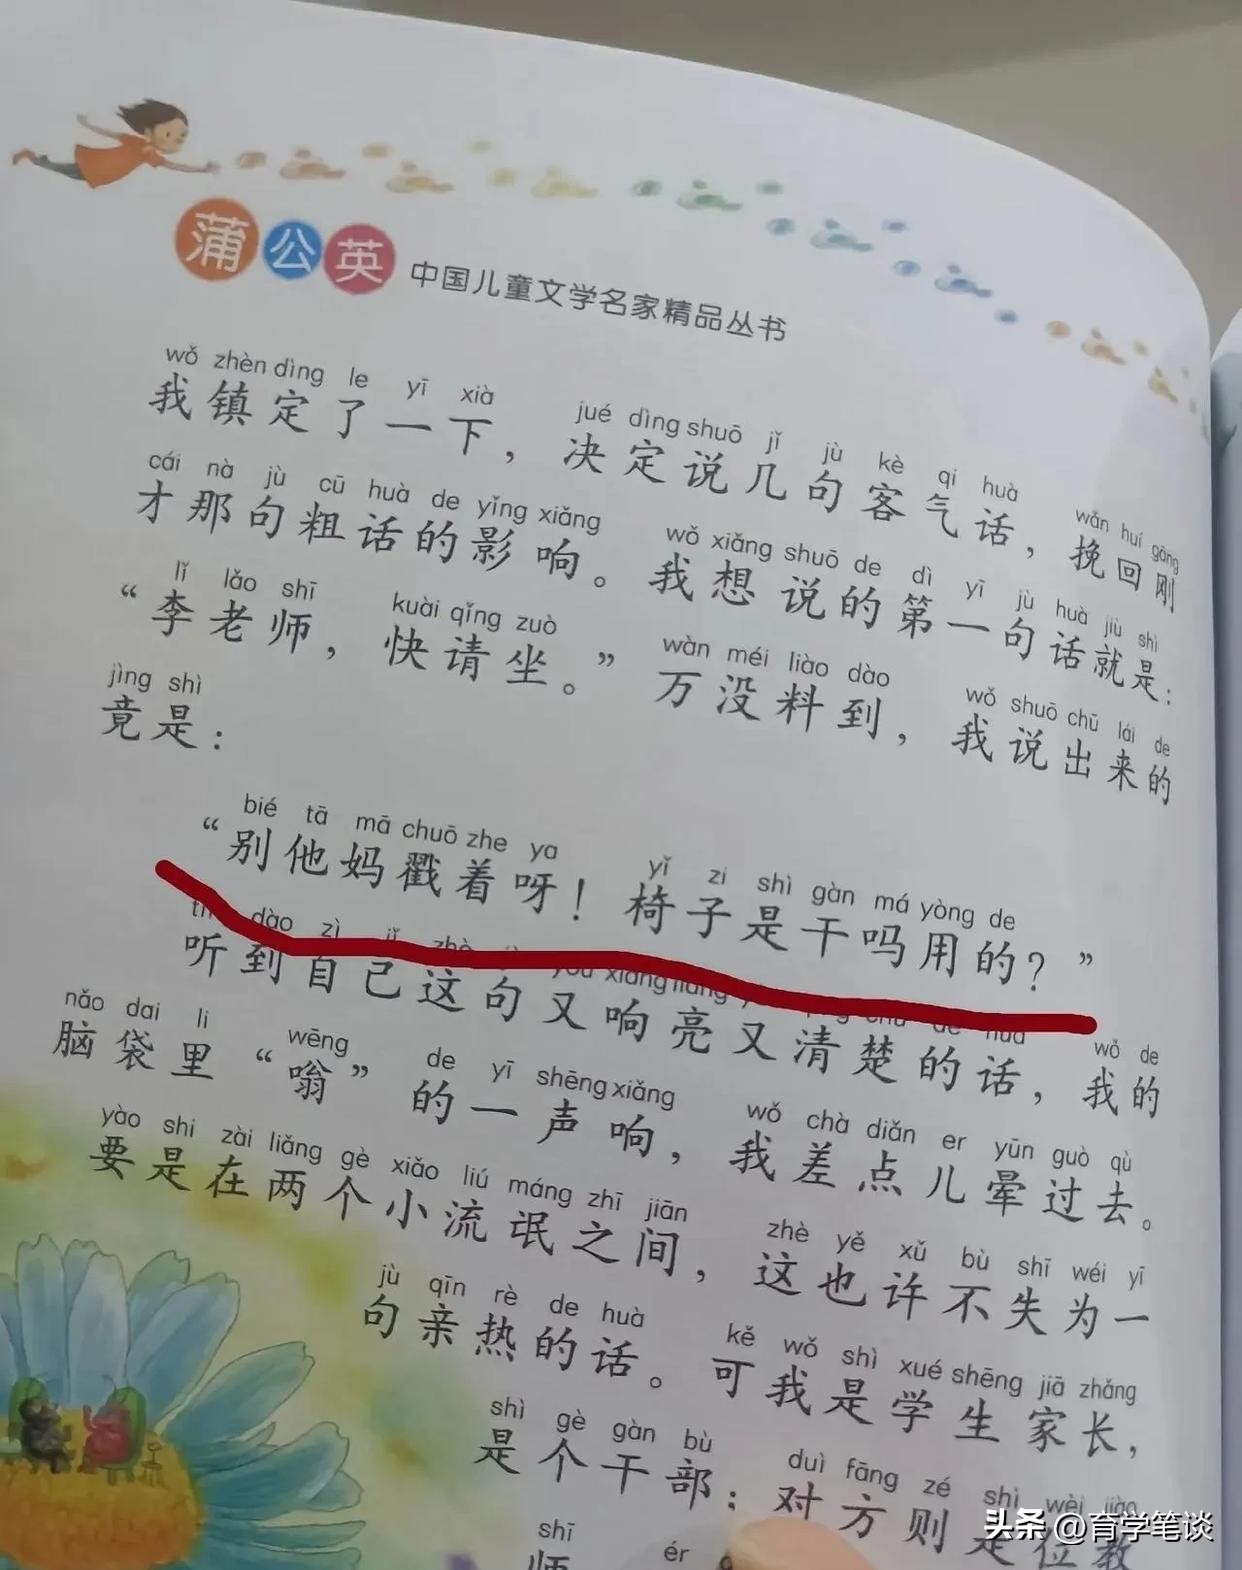 蒲公英 中国儿童文学名家精品丛书
wǒ zhèn dìng le yī xià jué dìng shuō jǐ jù kè qi huà wǎn huí gāng
我镇定了一下，决定说几句客气话，挽回刚
cái nà jù cū huà de yǐng xiǎng wǒ xiǎng shuō de dì yī jù huà jiù shì
才那句粗话的影响。我想说的第一句话就是：
lǐ lǎo shī kuài qǐng zuò wàn méi liào dào wǒ shuō chū lái de
“李老师，快请坐。”万没料到，我说出来的
jìng shì
竟是：
bié tā mā chuō zhe ya yǐ zi shì gàn má yòng de
“别他妈戳着呀！椅子是干吗用的？”
dào zì
听到自己这句又响亮又清楚的话，我的
wǒ de
nǎo dai li wēng de yī shēng xiǎng wǒ chà diǎn er yūn guò qù
脑袋里“嗡”的一声响，我差点儿晕过去。
yào shi zài liǎng gè xiǎo liú máng zhī jiān zhè yě xǔ bù shī wéi yī
要是在两个小流氓之间，这也许不失为一
jù qīn rè de huà kě wǒ shì xué shēng jiā zhǎng
句亲热的话。可我是学生家长，
shì gè gàn bù duì fāng zé shì wèi jiào
是个干部；对方则是位教
shī ér
师
头条 @育学笔谈